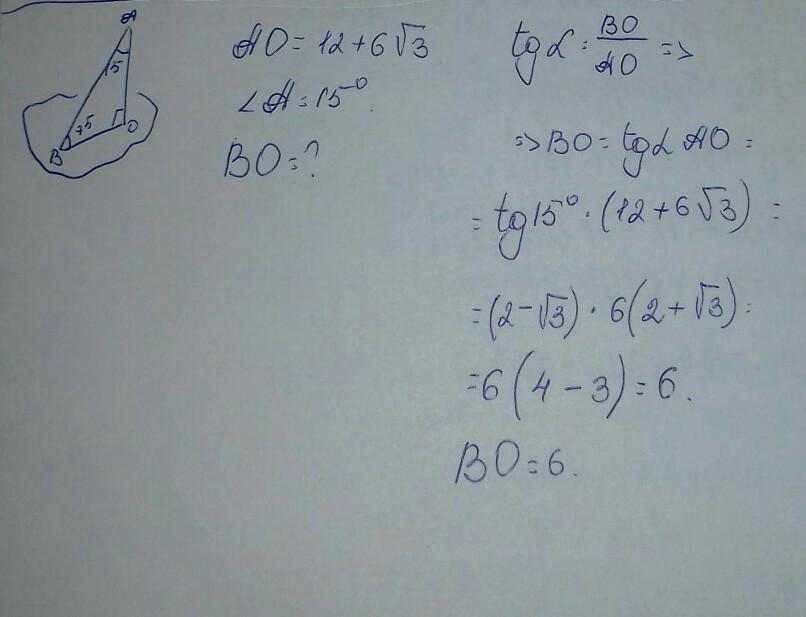 A
15
75
B
O
AO = 12 + 6√3
∠A = 15°.
BO = ?
tg α = BO/AO =>
=> BO = tg α AO =
= tg 15° · (12 + 6√3) =
= (2 - √3) · 6(2 + √3) =
= 6(4 - 3) = 6.
BO = 6.